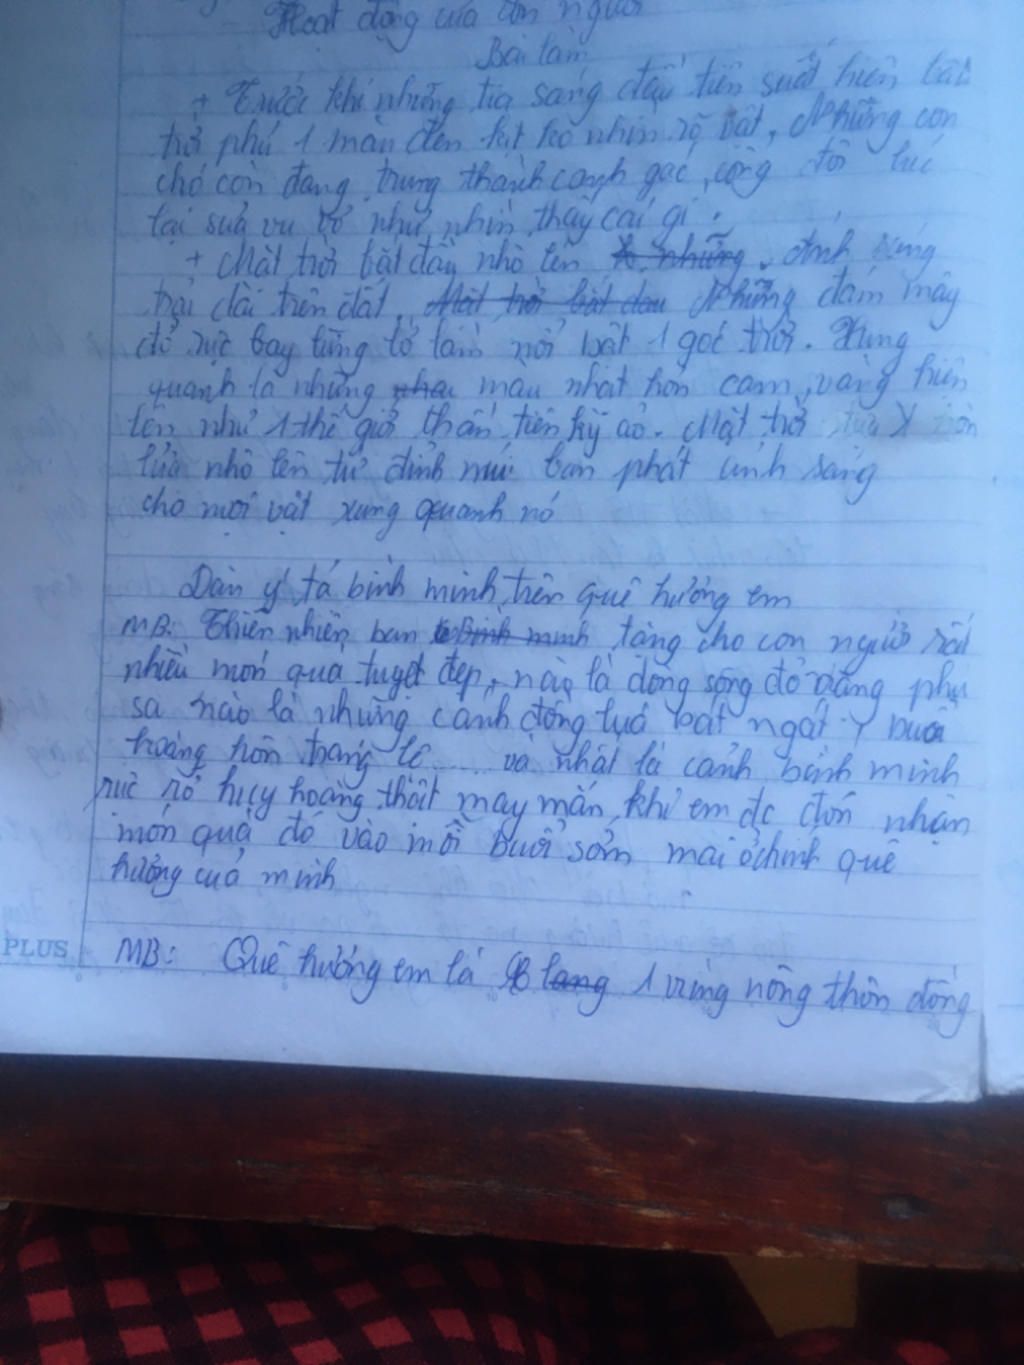 Hoạt động của con người
Bài làm
+ Trước khi những tia sáng đầu tiên suất hiện bầu
trời phủ 1 màn đen kịt ko nhìn rõ vật, Những con
chó còn đang trung thành canh gác, cộng đôi lúc
lại sủa vu vơ như nhìn thấy cái gì.
+ Mặt trời bắt đầu nhô lên những. Ánh sáng
trải dài trên đất. Mặt trời bắt đau Những đám mây
đỏ rực bay lững lờ làm nổi bật 1 góc trời. Xung
quanh là những màu nhạt hơn cam, vàng hiện
lên như 1 thế giới thần tiên kỳ ảo. Mặt trời
lửa nhô lên từ đỉnh núi ban phát ánh sáng
cho mọi vật xung quanh nó
Dàn ý tả bình minh trên quê hương em
MB: Thiên nhiên ban bình minh tặng cho con người rất
nhiều món quà tuyệt đẹp, nào là dòng sông đỏ nặng phù
sa nào là những cánh đồng lúa bát ngát buổi
hoàng hôn tráng lệ..... và nhất là cảnh bình minh
rực rỡ huy hoàng thật may mắn khi em đc đón nhận
món quà đó vào mỗi buổi sớm mai ở chính quê
hương của mình
PLUS MB: Quê hương em là lang 1 vùng nông thôn đồng